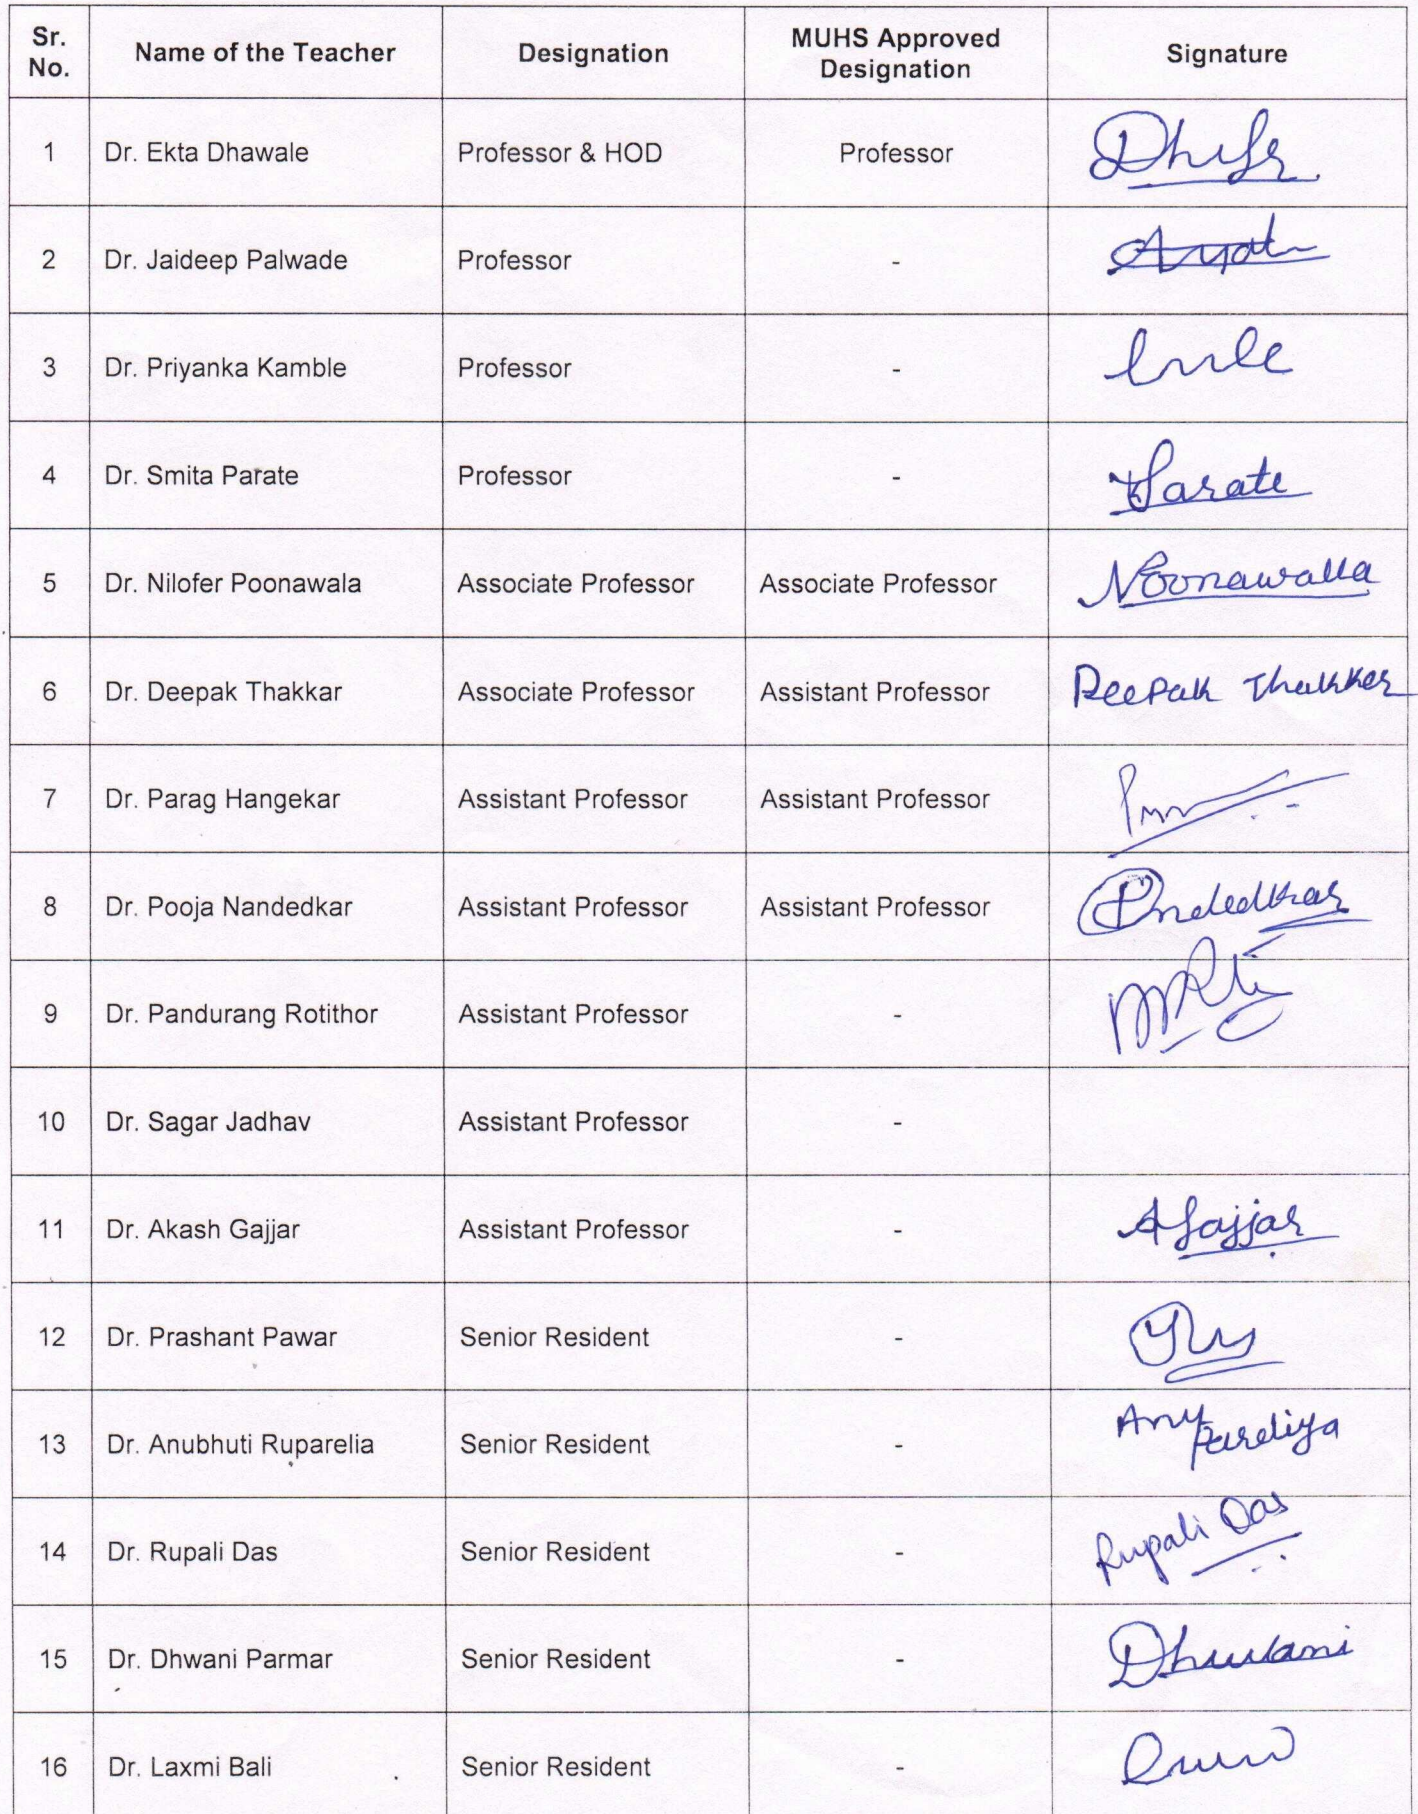 Sr. No. Name of the Teacher Designation MUHS Approved Designation Signature
1 Dr. Ekta Dhawale Professor & HOD Professor
2 Dr. Jaideep Palwade Professor -
3 Dr. Priyanka Kamble Professor -
4 Dr. Smita Parate Professor - Parate
5 Dr. Nilofer Poonawala Associate Professor Associate Professor NPoonawalla
6 Dr. Deepak Thakkar Associate Professor Assistant Professor Deepak Thakker
7 Dr. Parag Hangekar Assistant Professor Assistant Professor
8 Dr. Pooja Nandedkar Assistant Professor Assistant Professor
9 Dr. Pandurang Rotithor Assistant Professor -
10 Dr. Sagar Jadhav Assistant Professor -
11 Dr. Akash Gajjar Assistant Professor - AGajjar
12 Dr. Prashant Pawar Senior Resident -
13 Dr. Anubhuti Ruparelia Senior Resident -
14 Dr. Rupali Das Senior Resident - Rupali Das
15 Dr. Dhwani Parmar Senior Resident - Dhwani
16 Dr. Laxmi Bali Senior Resident -